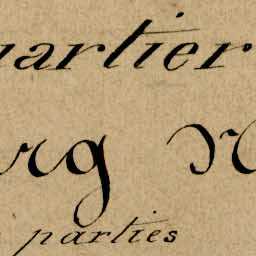 uartier
rg N
parties